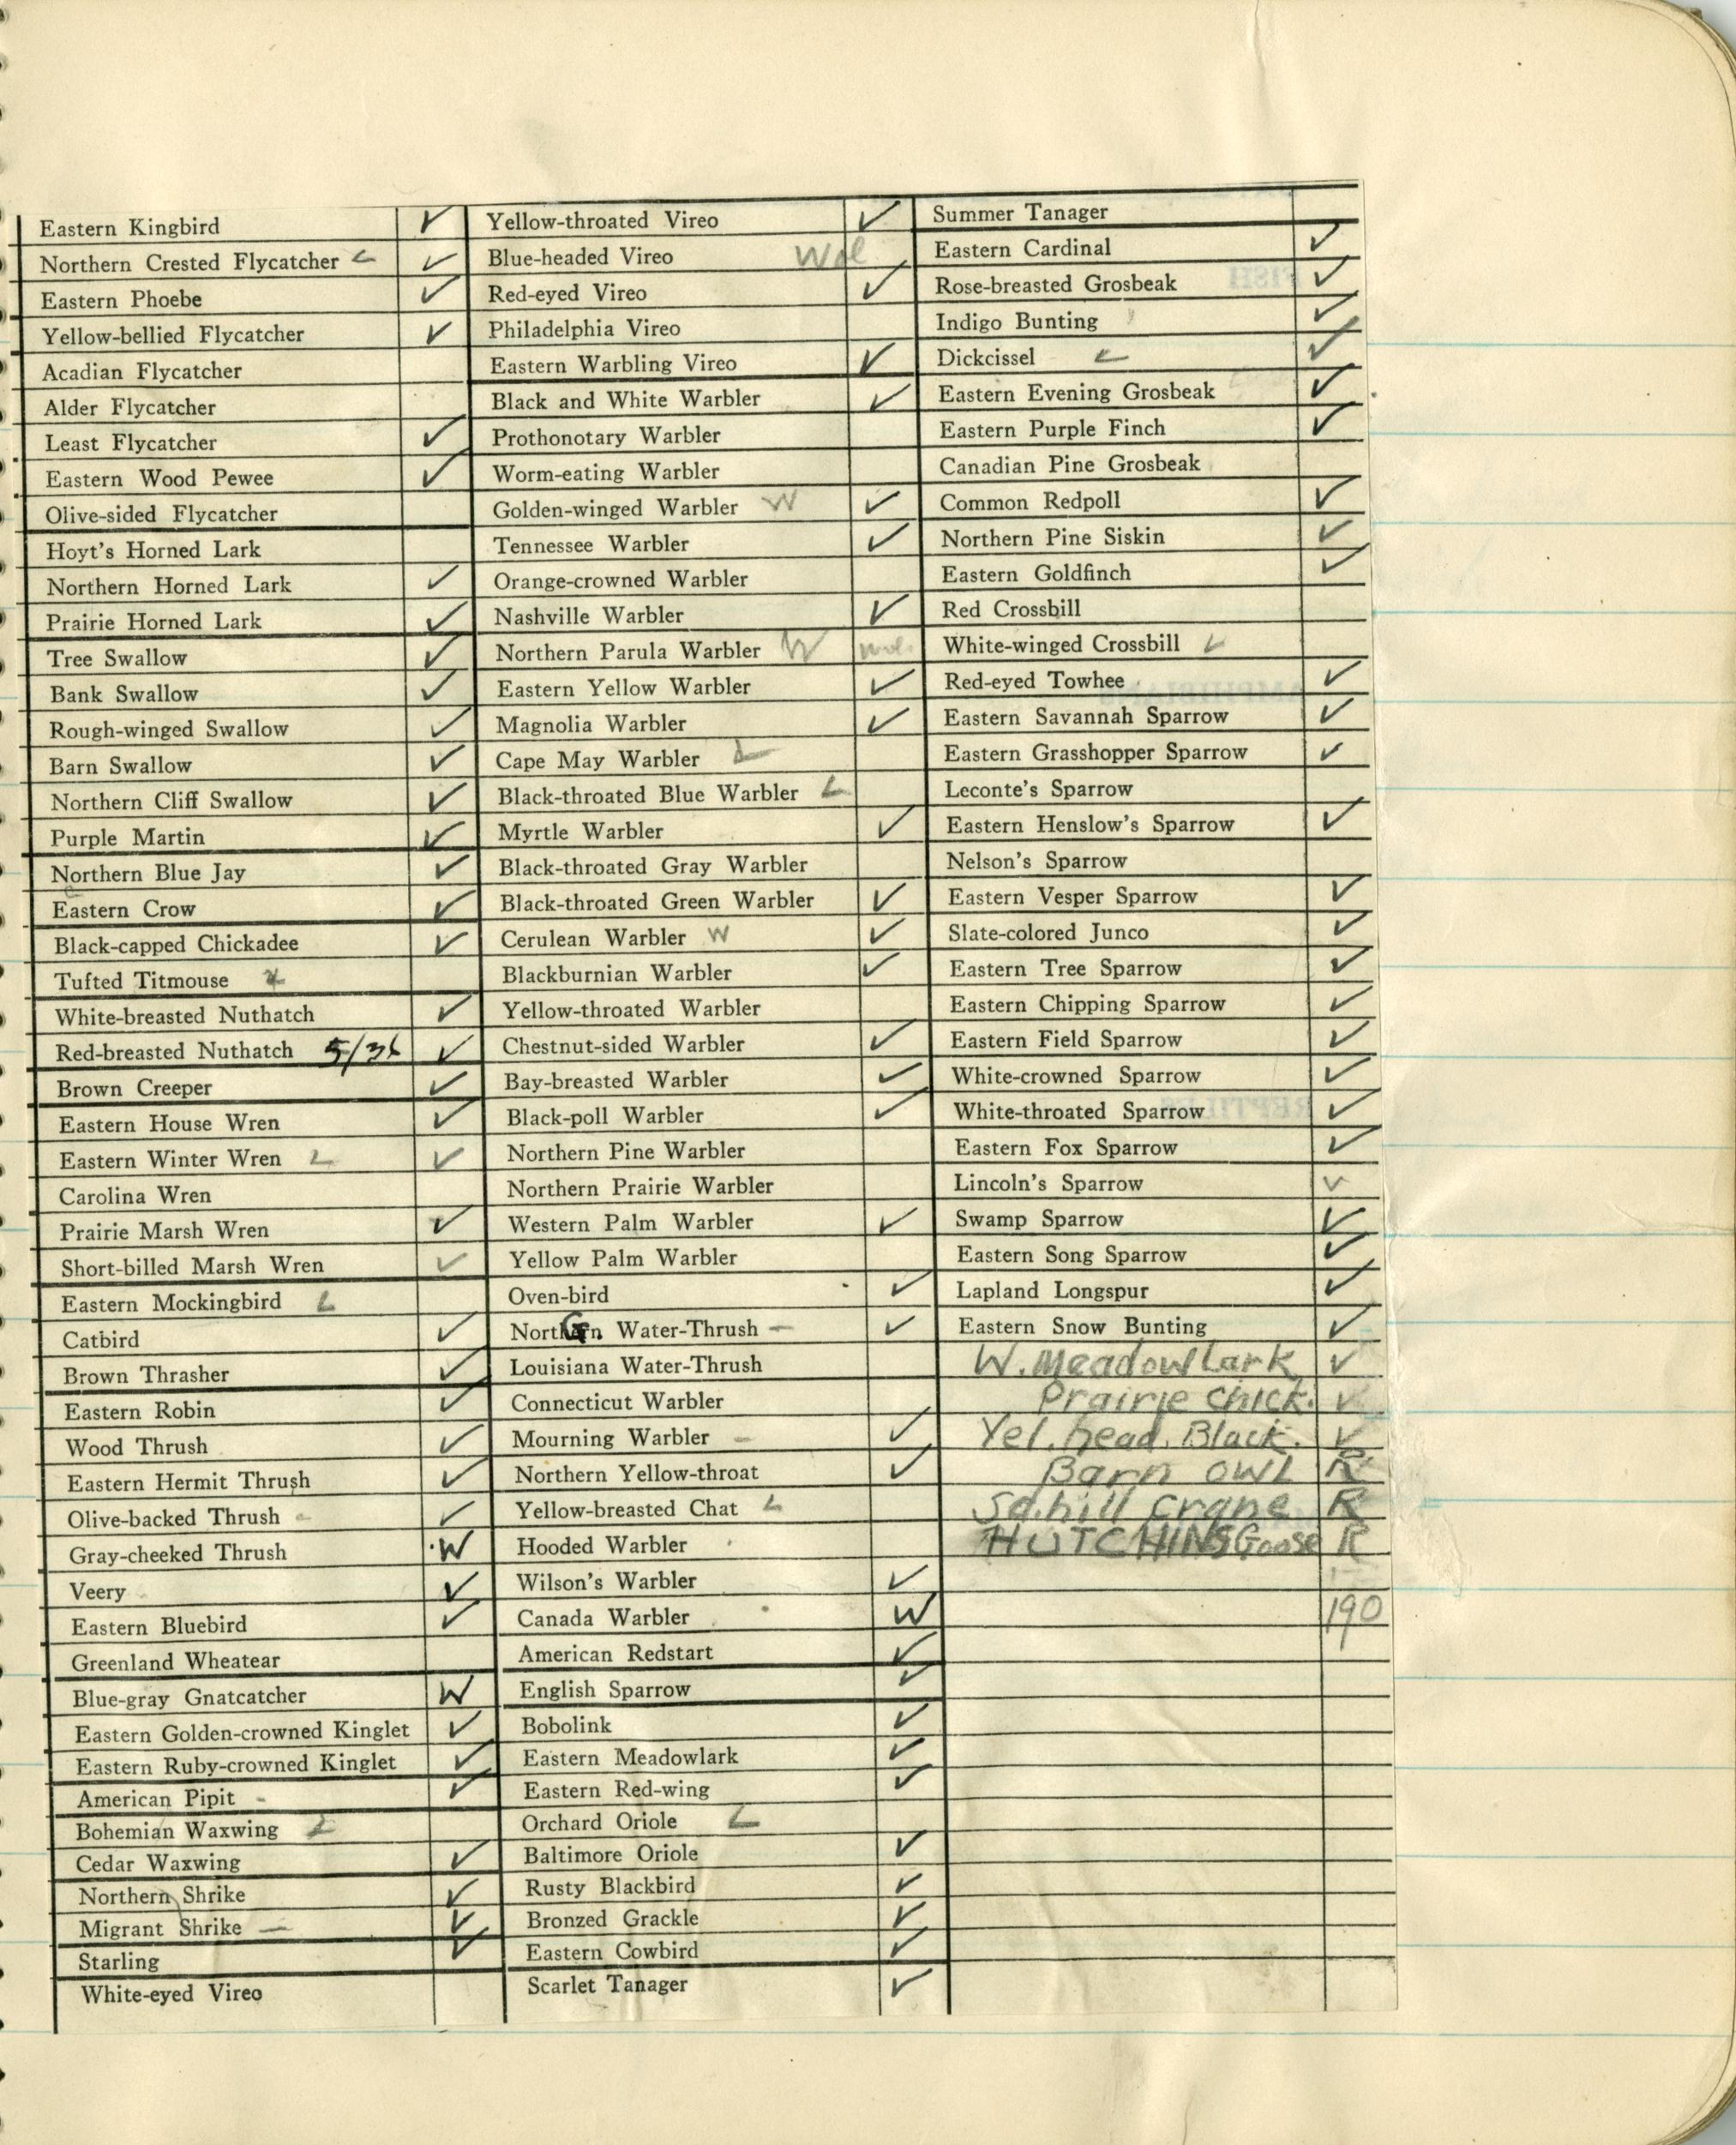 Eastern Kingbird ✓
Northern Crested Flycatcher L ✓
Eastern Phoebe ✓
Yellow-bellied Flycatcher ✓
Acadian Flycatcher
Alder Flycatcher
Least Flycatcher ✓
Eastern Wood Pewee ✓
Olive-sided Flycatcher
Hoyt's Horned Lark
Northern Horned Lark ✓
Prairie Horned Lark ✓
Tree Swallow ✓
Bank Swallow ✓
Rough-winged Swallow ✓
Barn Swallow ✓
Northern Cliff Swallow ✓
Purple Martin ✓
Northern Blue Jay ✓
Eastern Crow ✓
Black-capped Chickadee ✓
Tufted Titmouse
White-breasted Nuthatch ✓
Red-breasted Nuthatch 5/36 ✓
Brown Creeper ✓
Eastern House Wren ✓
Eastern Winter Wren L ✓
Carolina Wren
Prairie Marsh Wren ✓
Short-billed Marsh Wren ✓
Eastern Mockingbird L
Catbird ✓
Brown Thrasher ✓
Eastern Robin ✓
Wood Thrush ✓
Eastern Hermit Thrush ✓
Olive-backed Thrush ✓
Gray-cheeked Thrush W
Veery ✓
Eastern Bluebird ✓
Greenland Wheatear
Blue-gray Gnatcatcher W
Eastern Golden-crowned Kinglet ✓
Eastern Ruby-crowned Kinglet ✓
American Pipit - ✓
Bohemian Waxwing L
Cedar Waxwing ✓
Northern Shrike ✓
Migrant Shrike — ✓
Starling ✓
White-eyed Vireo
Yellow-throated Vireo ✓
Blue-headed Vireo Wol
Red-eyed Vireo ✓
Philadelphia Vireo
Eastern Warbling Vireo ✓
Black and White Warbler ✓
Prothonotary Warbler
Worm-eating Warbler
Golden-winged Warbler W ✓
Tennessee Warbler ✓
Orange-crowned Warbler
Nashville Warbler ✓
Northern Parula Warbler W Wol.
Eastern Yellow Warbler ✓
Magnolia Warbler ✓
Cape May Warbler L
Black-throated Blue Warbler L
Myrtle Warbler ✓
Black-throated Gray Warbler
Black-throated Green Warbler ✓
Cerulean Warbler W ✓
Blackburnian Warbler ✓
Yellow-throated Warbler
Chestnut-sided Warbler ✓
Bay-breasted Warbler ✓
Black-poll Warbler ✓
Northern Pine Warbler
Northern Prairie Warbler
Western Palm Warbler ✓
Yellow Palm Warbler
Oven-bird ✓
Northern G. Water-Thrush — ✓
Louisiana Water-Thrush
Connecticut Warbler
Mourning Warbler — ✓
Northern Yellow-throat ✓
Yellow-breasted Chat L
Hooded Warbler
Wilson's Warbler ✓
Canada Warbler W
American Redstart ✓
English Sparrow ✓
Bobolink ✓
Eastern Meadowlark ✓
Eastern Red-wing ✓
Orchard Oriole L
Baltimore Oriole ✓
Rusty Blackbird ✓
Bronzed Grackle ✓
Eastern Cowbird ✓
Scarlet Tanager ✓
Summer Tanager
Eastern Cardinal ✓
Rose-breasted Grosbeak ✓
Indigo Bunting ✓
Dickcissel L ✓
Eastern Evening Grosbeak ✓
Eastern Purple Finch ✓
Canadian Pine Grosbeak
Common Redpoll ✓
Northern Pine Siskin ✓
Eastern Goldfinch ✓
Red Crossbill
White-winged Crossbill L
Red-eyed Towhee ✓
Eastern Savannah Sparrow ✓
Eastern Grasshopper Sparrow ✓
Leconte's Sparrow
Eastern Henslow's Sparrow ✓
Nelson's Sparrow
Eastern Vesper Sparrow ✓
Slate-colored Junco ✓
Eastern Tree Sparrow ✓
Eastern Chipping Sparrow ✓
Eastern Field Sparrow ✓
White-crowned Sparrow ✓
White-throated Sparrow ✓
Eastern Fox Sparrow ✓
Lincoln's Sparrow ✓
Swamp Sparrow ✓
Eastern Song Sparrow ✓
Lapland Longspur ✓
Eastern Snow Bunting ✓
W. Meadowlark ✓
Prairie Chick. ✓
Yel. head. Black. ✓
Barn OWL R
Sd.hill Crane R
HUTCHINS Goose R
190